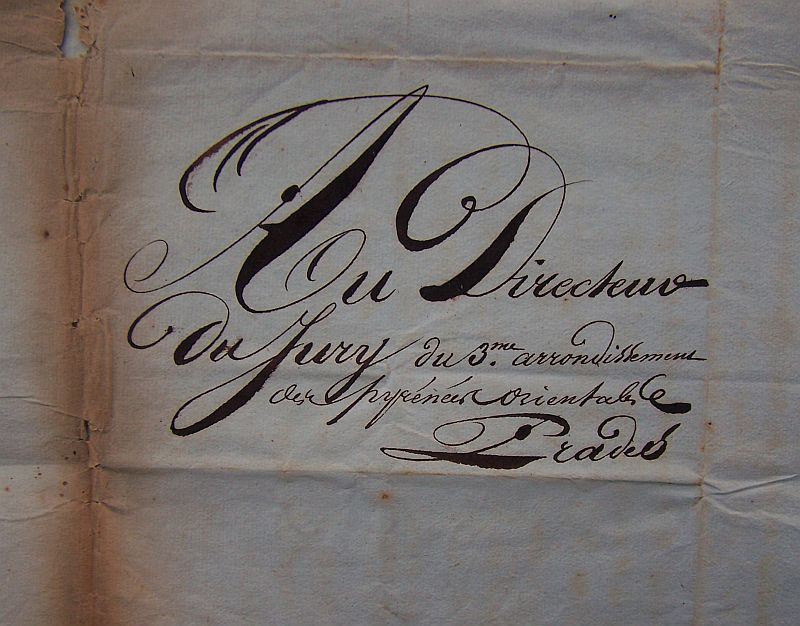 Au Directeur
du Jury du 3.me arrondissement
des pyrénées orientales
Prades